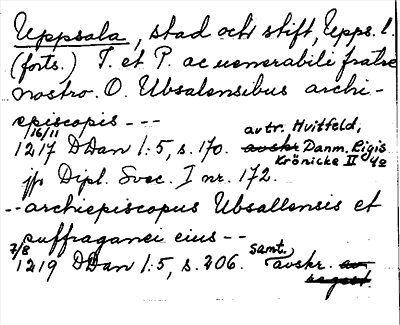 Uppsala, stad och stift, Upps. l.
(forts.) T. et P. ac venerabili fratre
nostro. O. Ubsalensibus archi-
episcopis ---
16/11 avtr. Hvitfeld,
1217 DDan 1:5, s. 170. avskr Danm. Rigis
Krönicke II 40
jfr Dipl. Svec. I nr. 172.
-- archiepiscopus Ubsallensis et
suffraganei eius --
7/8 samt.
1219 DDan 1:5, s. 206. avskr. av
regest